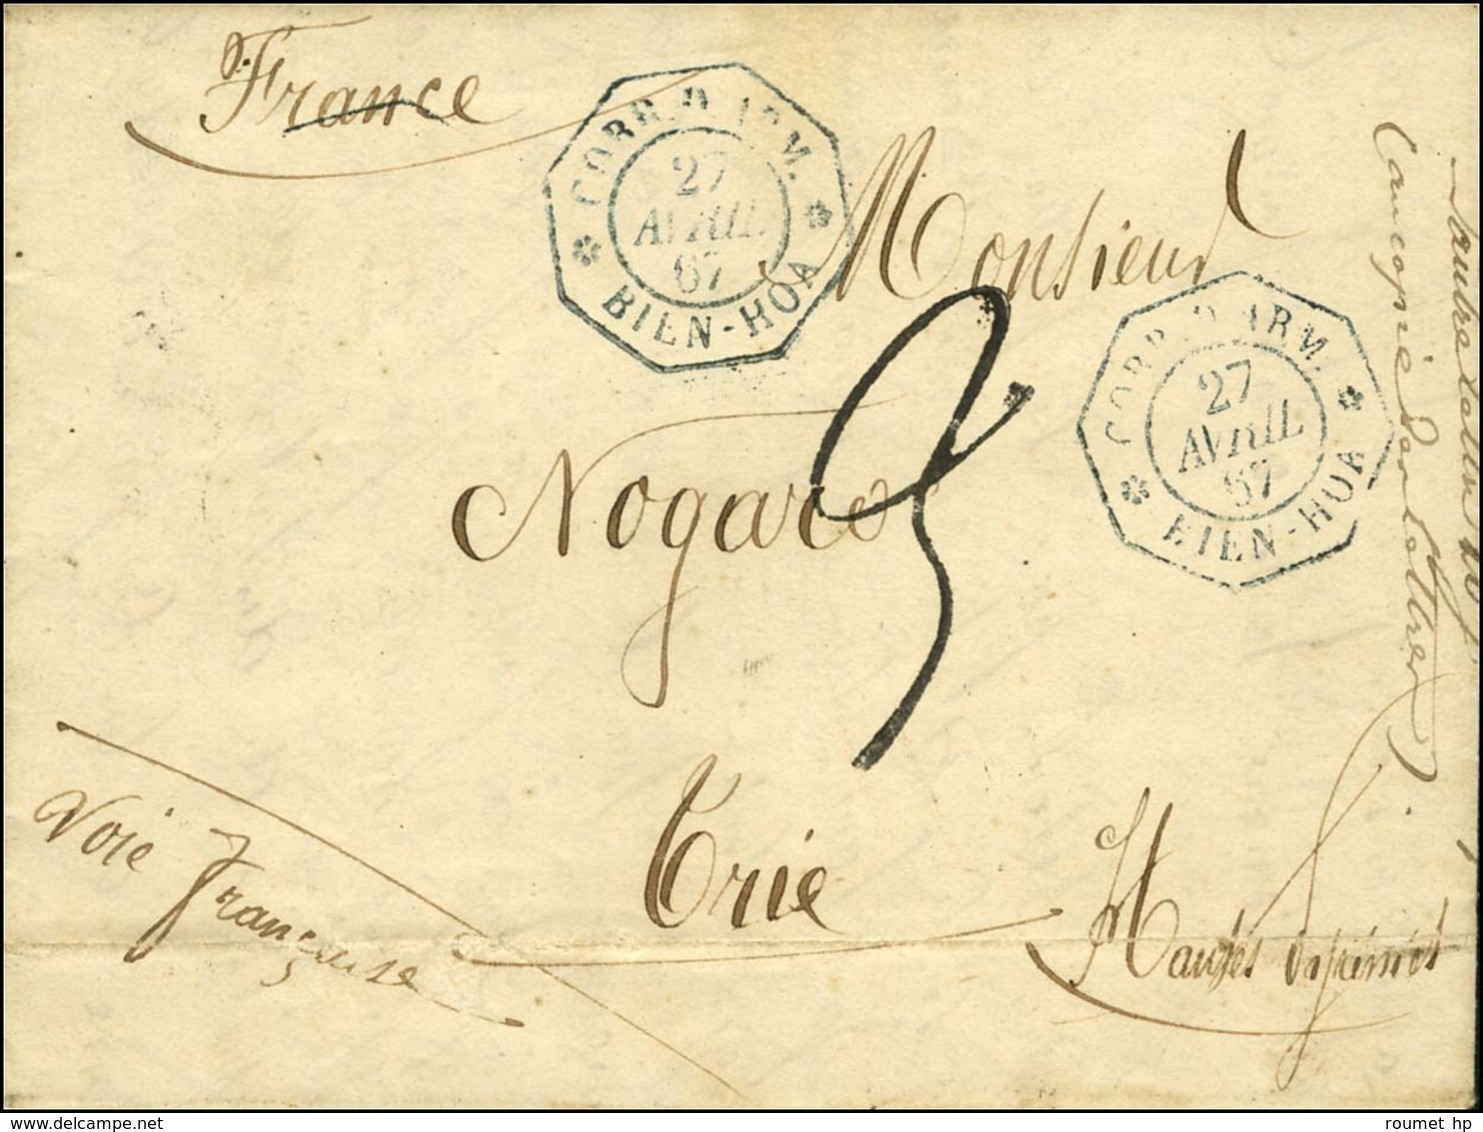 France
CORR. D. ARM.
27
AVRIL
67
BIEN-HOA
Monsieur
CORR. D. ARM.
27
AVRIL
67
BIEN-HOA
Nogaro
Trie
Hautes Pyrénées
Voie française
roumet hp